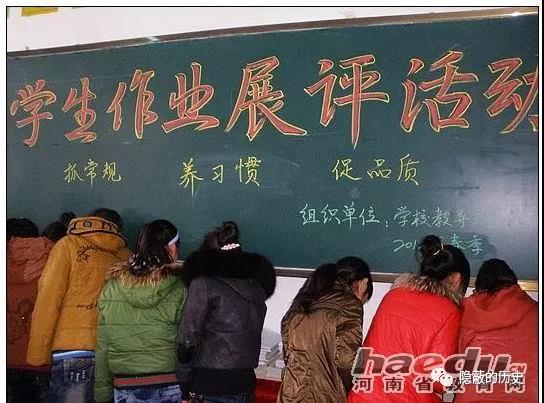 学生作业展评活动
抓常规 养习惯 促品质
组织单位：学校教导
201 春季
haedu
河南省教育网
隐蔽的历史